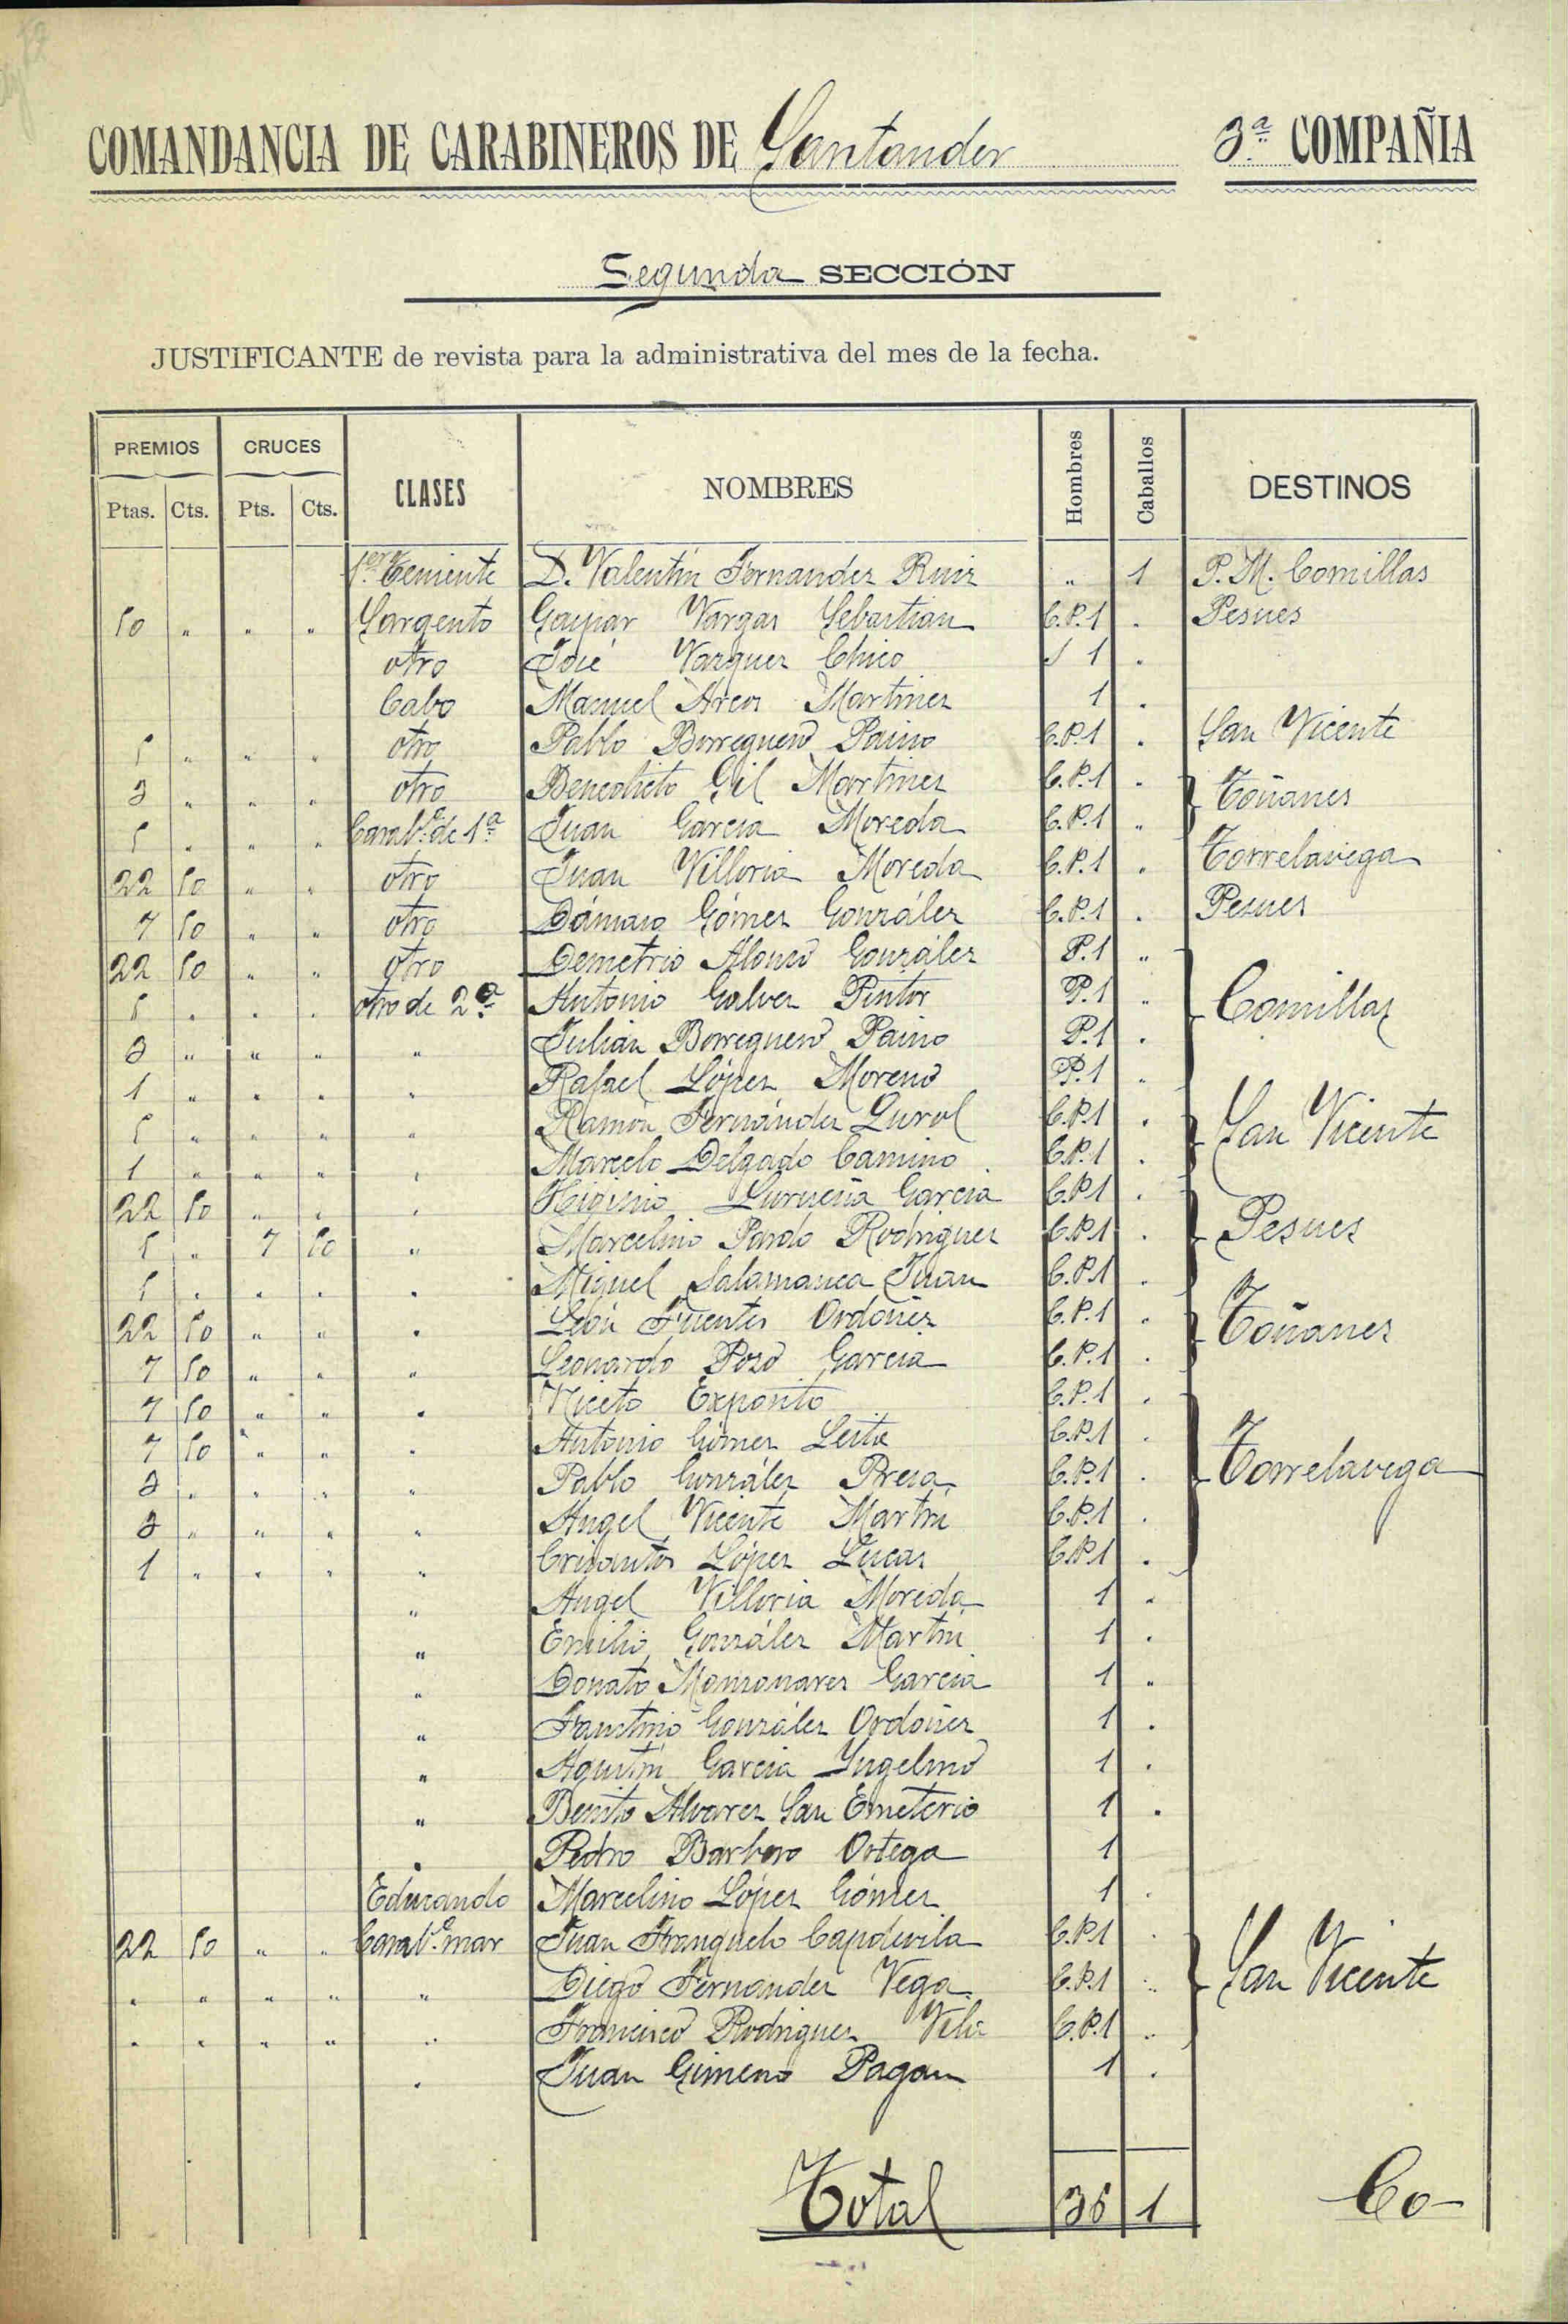 COMANDANCIA DE CARABINEROS DE Santander 3.ª COMPAÑIA
Segunda SECCIÓN
JUSTIFICANTE de revista para la administrativa del mes de la fecha.
PREMIOS CRUCES CLASES NOMBRES Hombres Caballos DESTINOS
Ptas. Cts. Pts. Cts.
1.er Teniente D. Valentín Fernandez Ruiz " 1 P. M. Comillas
50 " " " Sargento Gaspar Vargas Sebastian C.P.1 . Pesues
otro José Vazquez Chico 1 "
Cabo Manuel Arcos Martinez 1 .
5 " " " otro Pablo Borreguero Paino C.P.1 . San Vicente
3 " " " otro Benedicto Gil Martinez C.P.1 " Toñanes
5 " " " Carab.º de 1.ª Juan Garcia Moreda C.P.1 "
22 50 " " otro Juan Villoria Moreda C.P.1 " Torrelavega
7 50 " " otro Dámaso Gómez González C.P.1 . Pesues
22 50 " " otro Demetrio Alonso González P.1 " Comillas
5 . . . otro de 2.ª Antonio Galvez Pintor P.1 "
3 " " " " Julián Borreguero Paino P.1 .
1 " " " " Rafael López Moreno P.1 "
5 " " " " Ramón Fernández C.P.1 . San Vicente
1 " " " " Marcelo Delgado Camino C.P.1 .
22 50 " " " Higinio Lurueña Garcia C.P.1 . Pesues
5 " 7 50 " Marcelino Pardo Rodriguez C.P.1 .
5 . . . . Miguel Salamanca Juan C.P.1 . Toñanes
22 50 " " . León Fuentes Ordoñez C.P.1 "
7 50 " " " Leonardo Pozo Garcia C.P.1 .
7 50 " " . Niceto Expósito C.P.1 . Torrelavega
7 50 " " . Antonio Gómez Leite C.P.1 .
3 " " " " Pablo González Presa C.P.1 .
3 " " " " Angel Vicente Martín C.P.1 .
1 " " " " Crisantos López Lucas C.P.1 .
" Angel Villoria Moreda 1 "
" Emilio González Martín 1 .
" Donato Manzanares Garcia 1 "
" Faustino González Ordoñez 1 .
" Agustín Garcia Yugelmo 1 .
" Benito Alvarez San Emeterio 1 .
. Pedro Barbero Ortega 1
Educando Marcelino López Gómez 1 .
22 50 " " Carab.º mar Juan Franquelo Capdevila C.P.1 . San Vicente
. " " " " Diego Fernandez Vega C.P.1 "
. " " " " Francisco Rodriguez C.P.1 "
. Juan Gimeno Pagan 1 .
Total 36 1 Co-